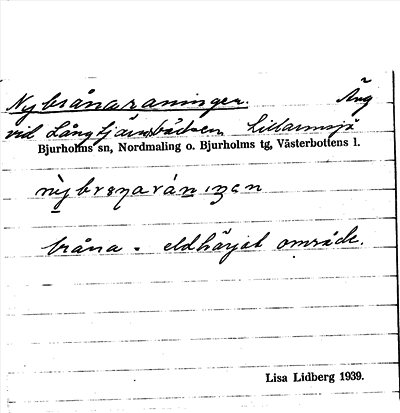 Nybrånaraningen. Äng
vid Långtjärnbäcken Lillarmsjö
Bjurholms sn, Nordmaling o. Bjurholms tg, Västerbottens l.
bråna = eldhärjat område.
Lisa Lidberg 1939.